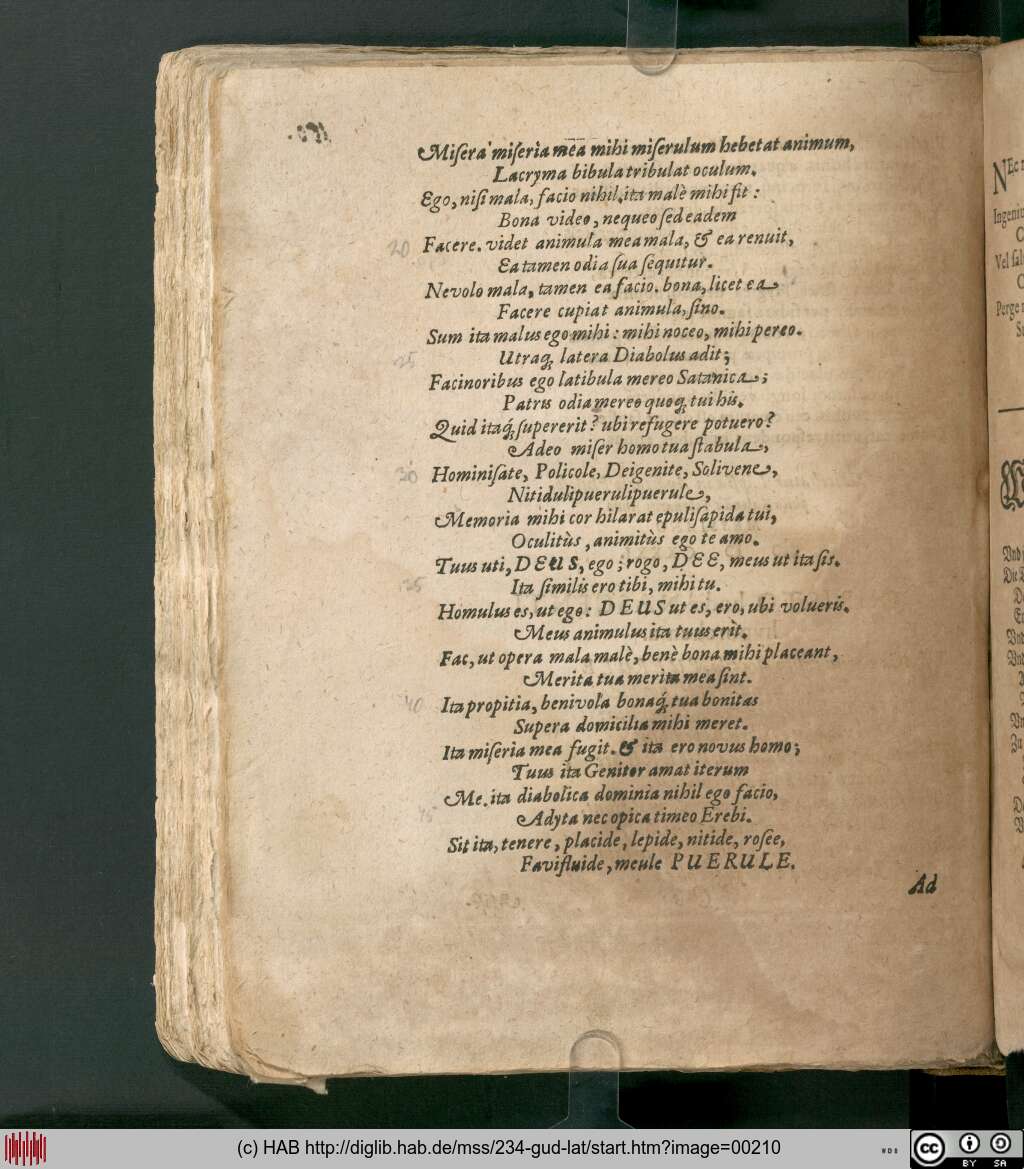 Miſera miſeria mea mihi miſerulum hebetat animum,
Lacryma bibula tribulat oculum.
Ego, niſi mala, facio nihil. ita malè mihi fit :
Bona video, nequeo ſed eadem
20 Facere. videt animula mea mala, & ea renuit,
Ea tamen odia ſua ſequitur.
Nevolo mala, tamen ea facio. bona, licet ea
Facere cupiat animula, ſino.
Sum ita malus ego mihi : mihi noceo, mihi pereo.
25 Utraq; latera Diabolus adit;
Facinoribus ego latibula mereo Satanica;
Patris odia mereo quoq; tui his.
Quid itaq́; ſupererit? ubi refugere potuero?
Adeo miſer homo tua ſtabula,
30 Hominiſate, Policole, Deigenite, Solivene,
Nitiduli pueruli puerule,
Memoria mihi cor hilarat epuli ſapida tui,
Oculitùs, animitùs ego te amo.
Tuus uti, DEUS, ego; rogo, DEE, meus ut ita ſis.
35 Ita ſimilis ero tibi, mihi tu.
Homulus es, ut ego: DEUS ut es, ero, ubi volueris.
Meus animulus ita tuus erit.
Fac, ut opera mala malè, benè bona mihi placeant,
Merita tua merita mea ſint.
40 Ita propitia, benivola bonaq́; tua bonitas
Supera domicilia mihi meret.
Ita miſeria mea fugit. & ita ero novus homo;
Tuus ita Genitor amat iterum
Me. ita diabolica dominia nihil ego facio,
45 Adyta nec opica timeo Erebi.
Sit ita, tenere, placide, lepide, nitide, roſee,
Favifluide, meule PUERULE.
Ad
NEc
Ingeni
Vel ſal
Perge
Vnd
Die
(c) HAB http://diglib.hab.de/mss/234-gud-lat/start.htm?image=00210
cc BY SA